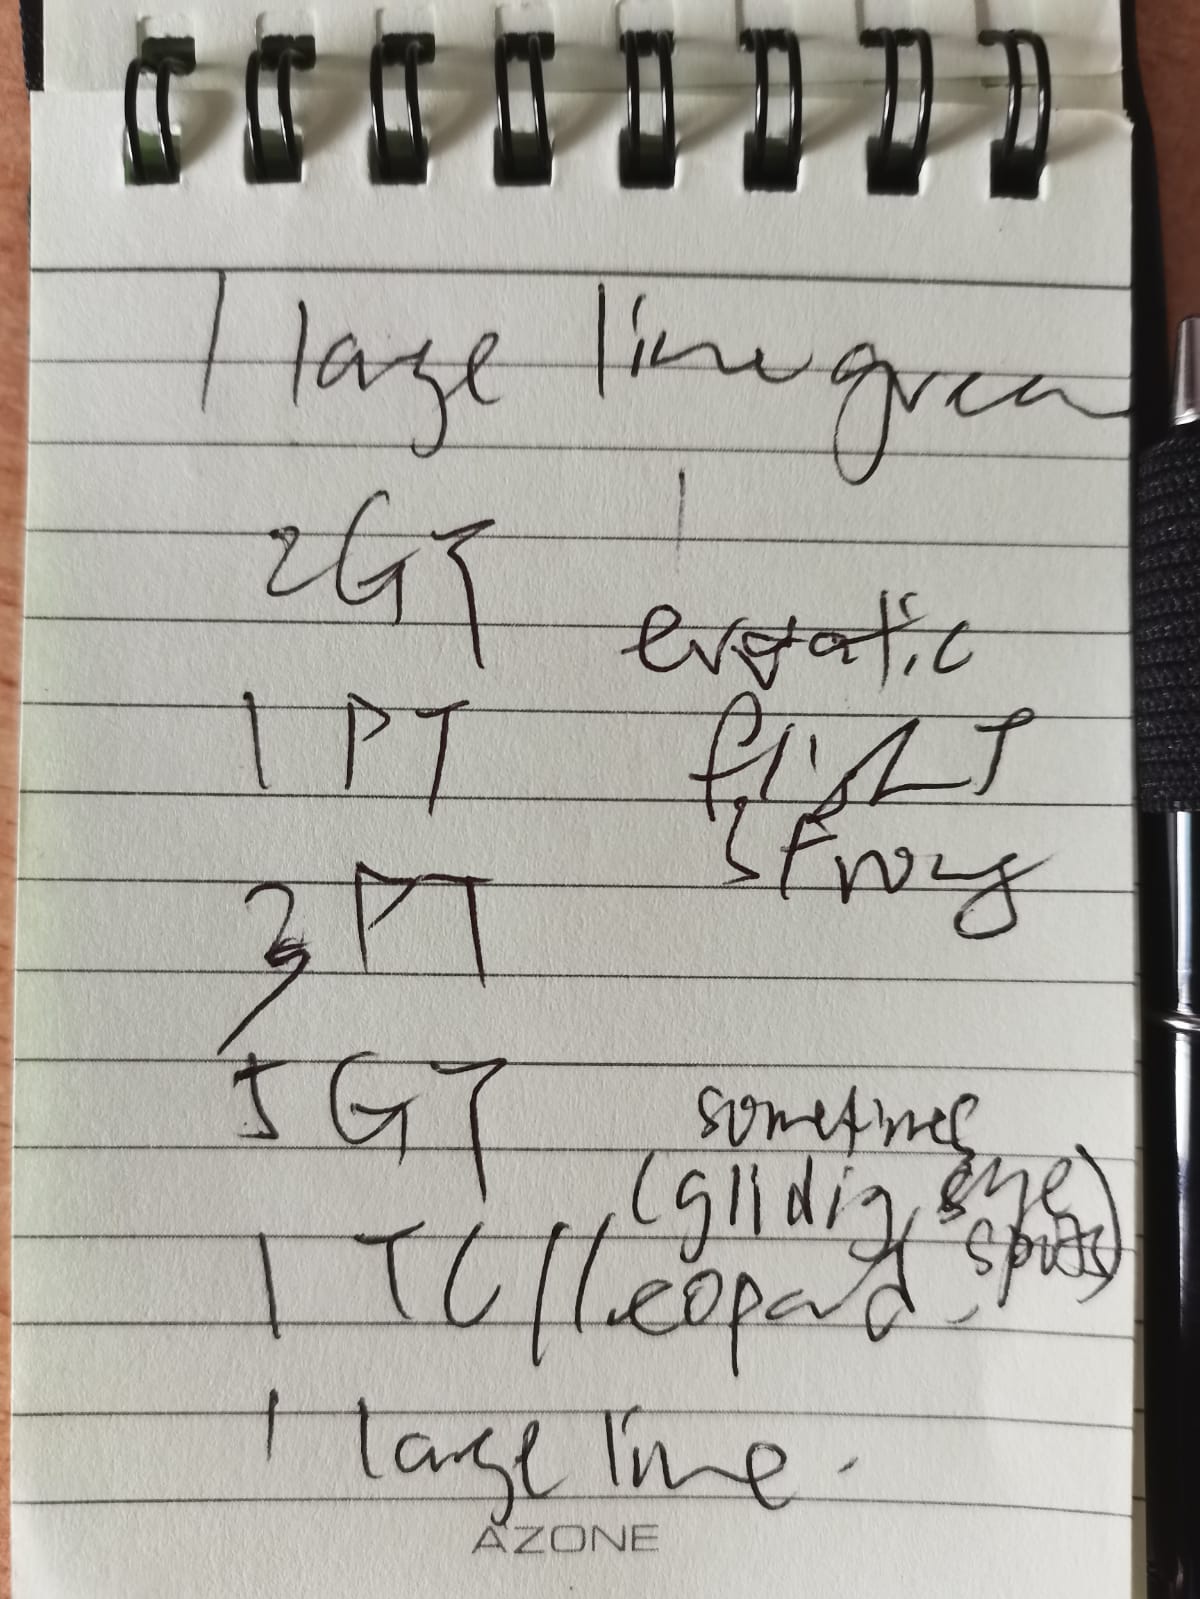 1 large lime green
2 GT
erratic
1 PT
flight
strong
PT
5 GT
sometimes
(gliding, eye
spots)
1 TC // Leopard
1 large lime.
AZONE